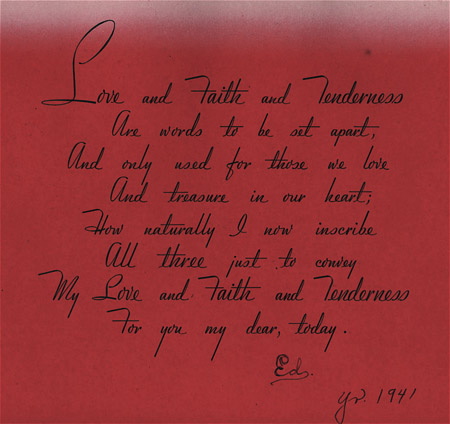 Love and Faith and Tenderness
Are words to be set apart,
And only used for those we love
And treasure in our heart;
How naturally I now inscribe
All three just to convey
My Love and Faith and Tenderness
For you my dear, today.
Eds.
yr. 1941